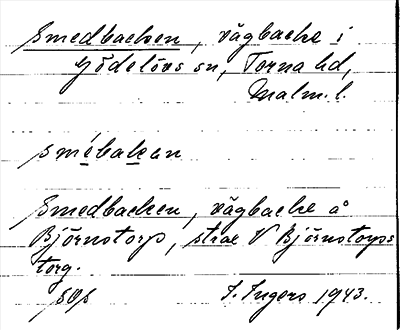 Smedbacken, vägbacke i
Gödelövs sn, Torna hd,
Malm. l.
smebakan
Smedbacken, vägbacke å
Björnstorp, strax V Björnstorps
torg.
I. Ingers 1943.